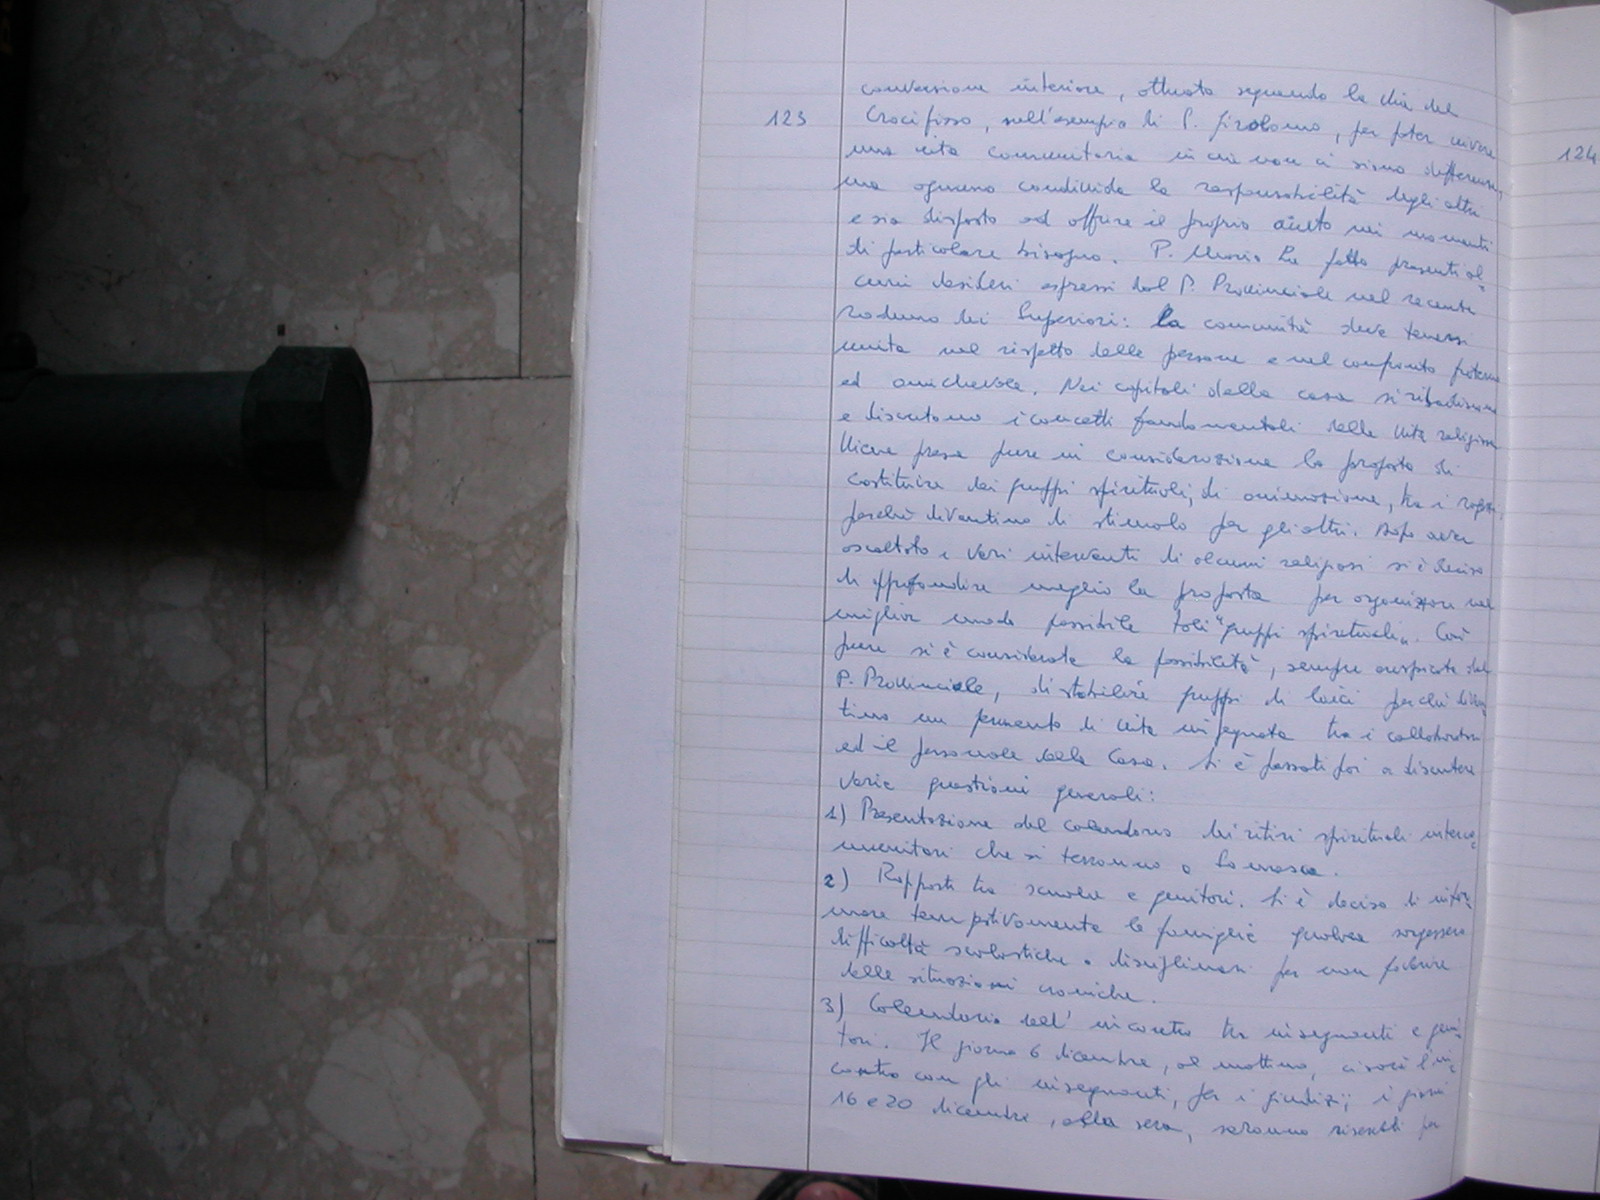 conversione interiore, attuata seguendo la via del
123 Crocifisso, sull'esempio di S. Girolamo, per poter vivere
una vita comunitaria in cui non ci siano differenze,
ma ognuno condivida la responsabilità degli altri
e sia disposto ad offrire il proprio aiuto nei momenti
di particolare bisogno. P. Mario ha fatto presenti al=
cuni desideri espressi dal P. Provinciale nel recente
raduno dei Superiori: la comunità deve tenersi
unita nel rispetto delle persone e nel confronto fraterno
ed amichevole. Nei capitoli della casa si ribadiscono
e discutono i concetti fondamentali della vita religiosa
Viene presa pure in considerazione la proposta di
costituire dei gruppi spirituali, di animazione, tra i ragazzi,
perchè diventino di stimolo per gli altri. Dopo aver
ascoltato i vari interventi di alcuni religiosi si è deciso
di approfondire meglio la proposta per organizzare nel
miglior modo possibile tali "gruppi spirituali". Così
pure si è considerata la possibilità, sempre auspicata dal
P. Provinciale, di stabilire gruppi di laici perchè diven=
tino un fermento di vita impegnata tra i collaboratori
ed il personale della Casa. Si è passati poi a discutere
varie questioni generali:
1) Presentazione del calendario dei ritiri spirituali interco=
munitari che si terranno a Somasca.
2) Rapporti tra scuola e genitori. Si è deciso di infor=
mare tempestivamente le famiglie qualora sorgessero
difficoltà scolastiche o disciplinari per non favorire
delle situazioni croniche.
3) Calendario dell'incontro tra insegnanti e geni=
tori. Il giorno 6 dicembre, al mattino, ci sarà l'in=
contro con gli insegnanti, per i giudizi; i giorni
16 e 20 dicembre, alla sera, saranno riservati per
124